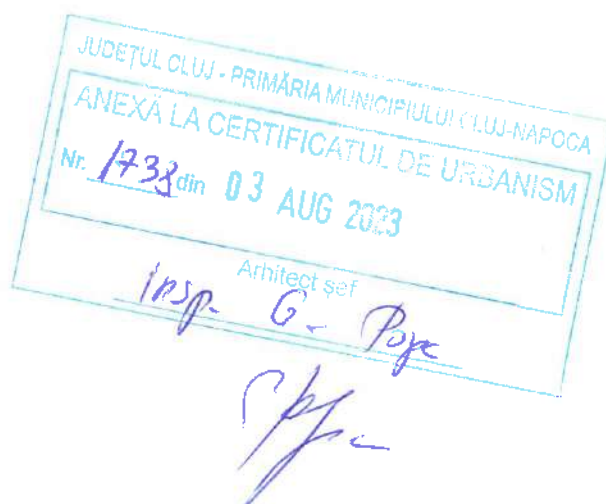 JUDEȚUL CLUJ - PRIMĂRIA MUNICIPIULUI CLUJ-NAPOCA
ANEXĂ LA CERTIFICATUL DE URBANISM
Nr. 1738 din 03 AUG 2023
Arhitect șef
insp. G.